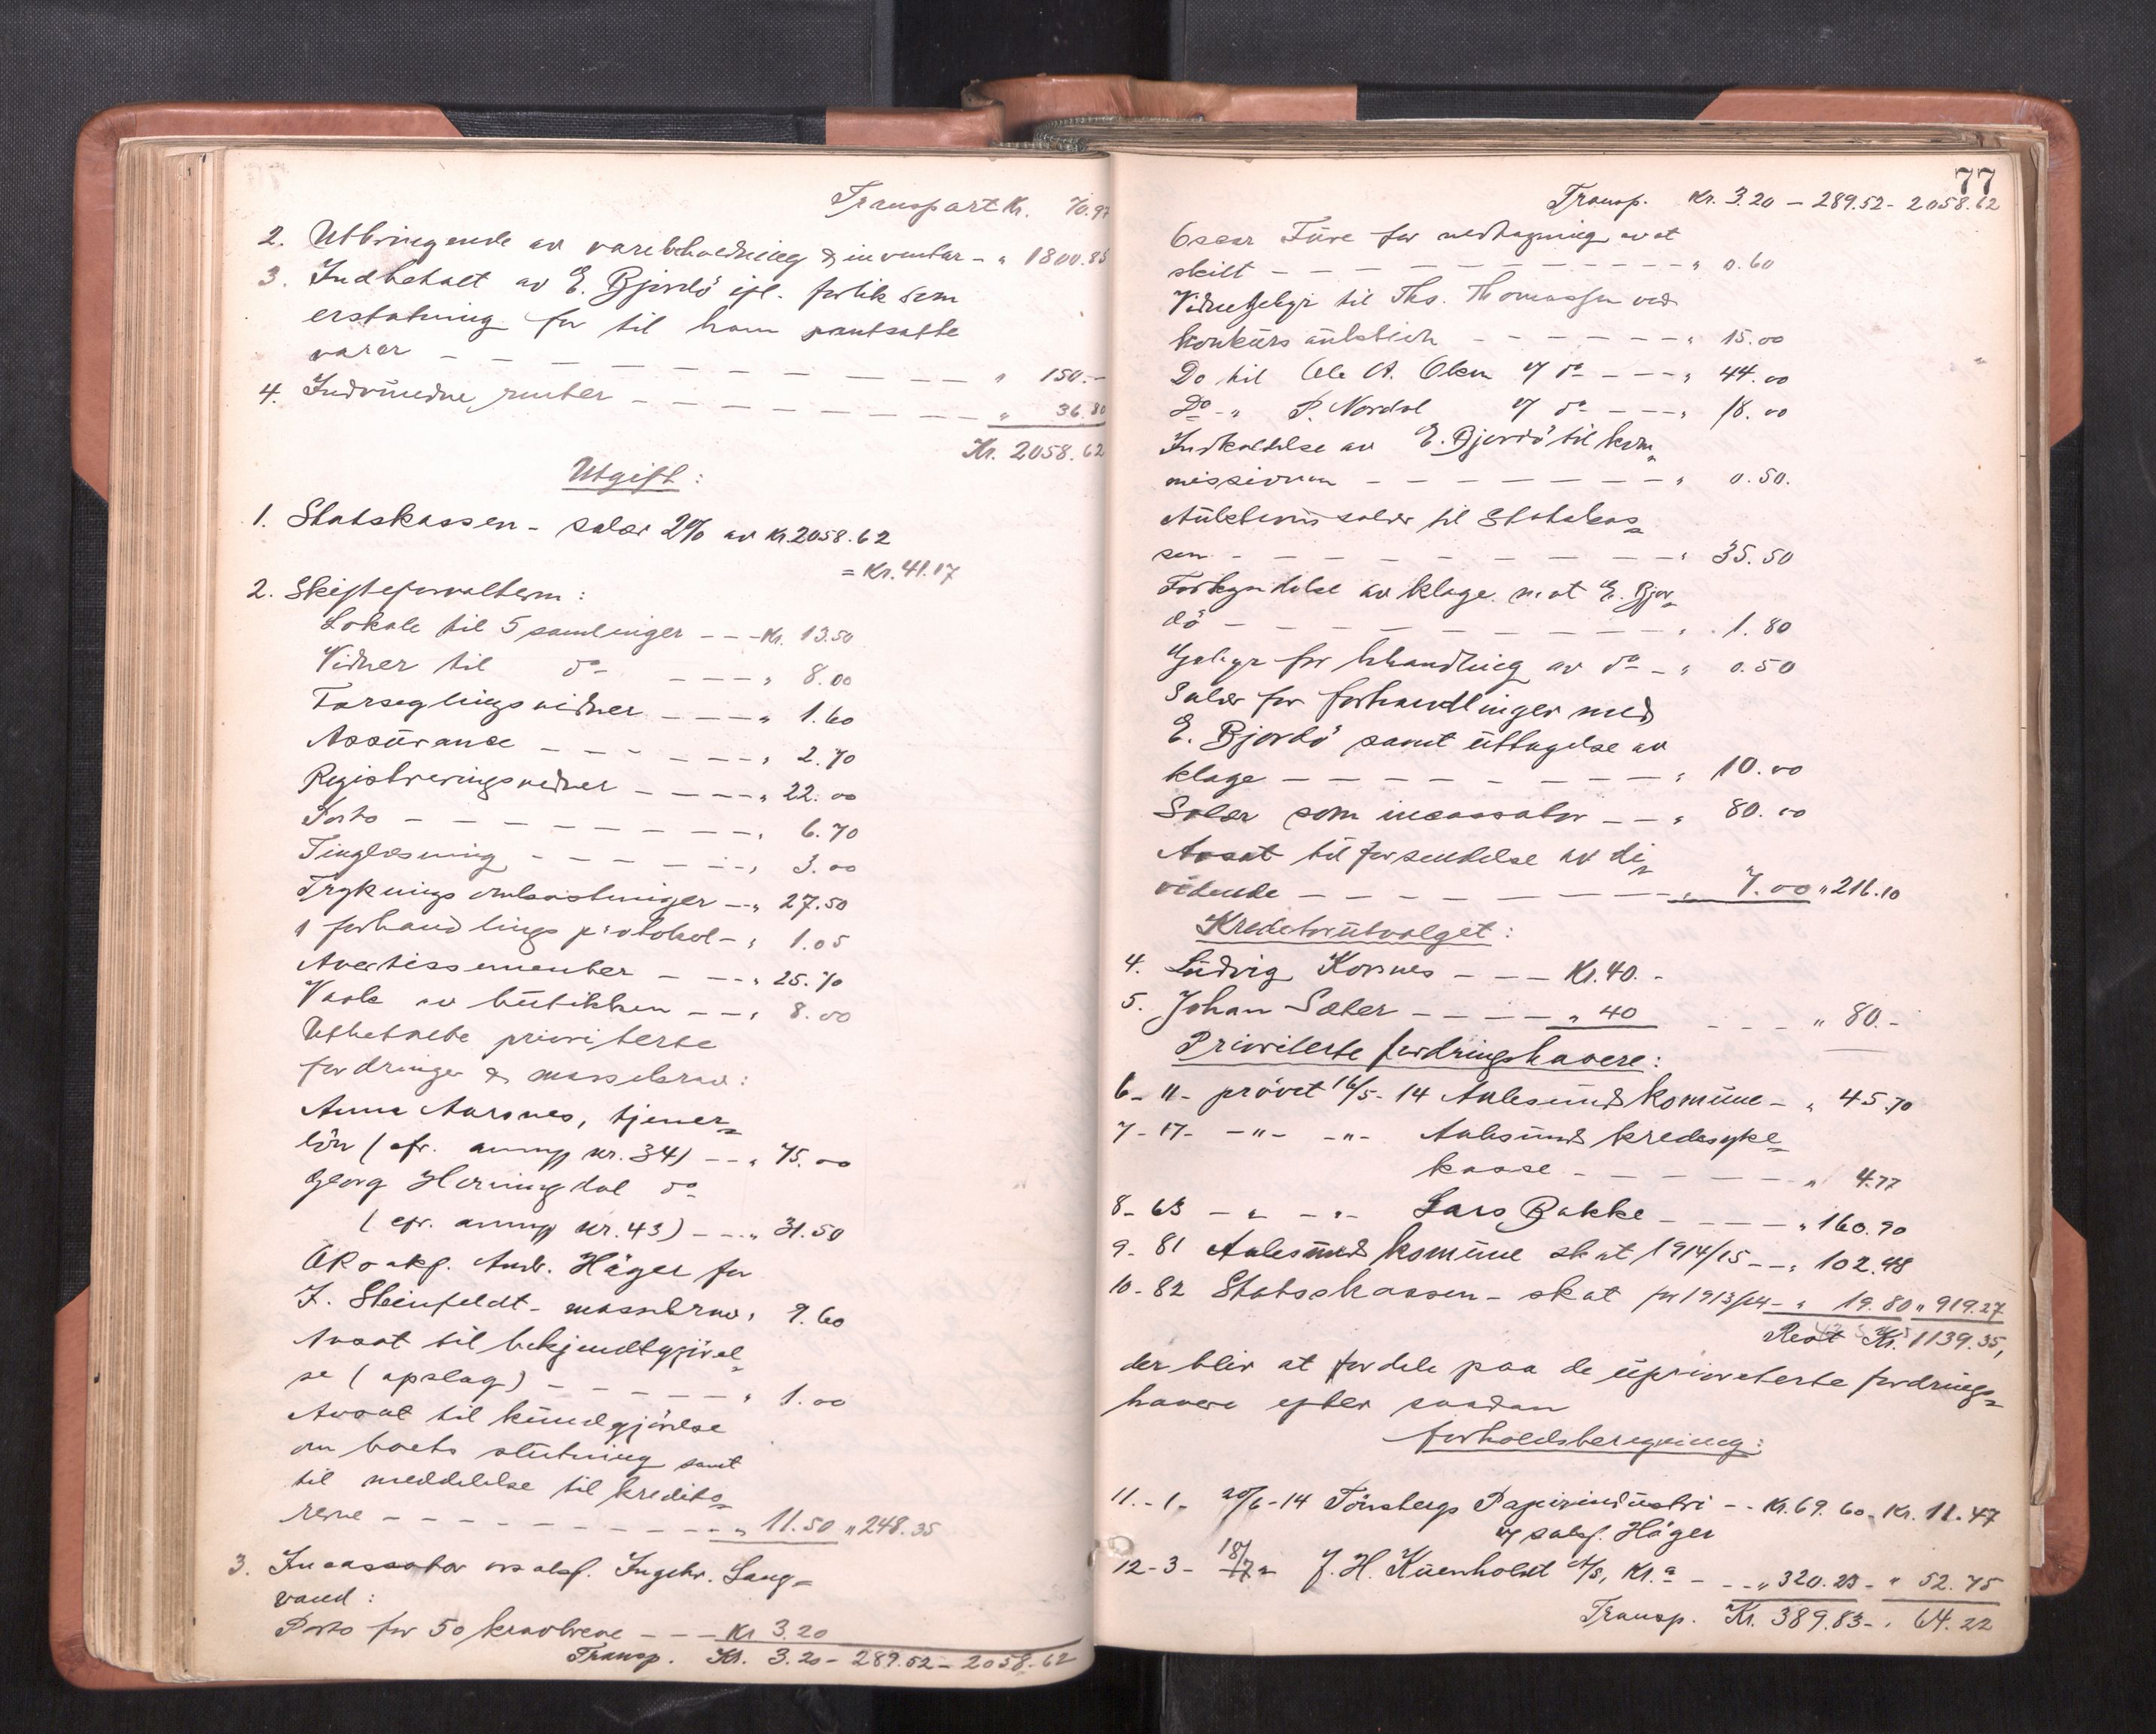 Transport Kr. 70.97
2. Utbringende av varebeholdning & inventar - " 1800.85
3. Indbetalt av E. Bjordö ifl. forlik som
erstatning for til ham pantsatte
varer - - - - - - - - " 150.-
4. Indvundne renter - - - - - - - " 36.80
Kr. 2058.62
Utgift:
1. Statskassen - salær 2% av Kr. 2058.62
= Kr. 41.17
2. Skifteforvalteren:
Lokale til 5 samlinger - - - Kr. 13.50
Vidner til do - - - " 8.00
Forseglingsvidner - - - " 1.60
Assürance - - - - - - " 2.70
Registreringsvidner - - - - " 22.00
Porto - - - - - - - - " 6.70
Tinglæsning - - - - - - " 3.00
Trykningsomkostninger - - " 27.50
1 forhandlingsprotokol - " 1.05
Avertissementer - - - - " 25.70
Vask av bütikken - - - " 8.00
Utbetalte prioriterte
fordringer & massekrav:
Anna Aarsnes, tjener-
lön (cfr. anmg nr. 34) - - " 75.00
Georg Horningdal do
(cfr. anmg nr. 43) - - - " 31.50
O.R.sakf. Andr. Häger for
J. Steinfeldt - massekrav " 9.60
Avsat til bekjendtgjörel-
se (opslag) - - - - - - " 1.00
Avsat til kündgjörelse
om boets slutning samt
til meddelelse til kredito-
rerne - - - - - - - - - " 11.50 " 248.35
3. Incassator o.r.sakf. Ingebr. Lang-
vand:
Porto for 50 kravbreve - - - Kr 3.20
Transp. Kr. 3.20 - 289.52 - 2058.62
77
Transp. Kr. 3.20 - 289.52 - 2058.62
Oscar Füre for nedtagning av et
skilt - - - - - - - - - - " 0.60
Vidnegebyr til Ths. Thomassen ved
konkürsaüktion - - - - - - " 15.00
Do til Ole A. Olsen v/ do - - - " 44.00
Do - " P. Nordal v/ do - - - " 18.00
Indkaldelse av E. Bjordö til kom-
missionen - - - - - - - " 0.50.
Aüktionssalær til Statskas-
sen - - - - - - - - - " 35.50
Forkyndelse av klage mot E. Bjor-
dö - - - - - - - - - - " 1.80
Gebyr for behandling av do - " 0.50
Salær for forhandlinger med
E. Bjordö samt üttagelse av
klage - - - - - - - - - " 10.00
Salær som incassator - - " 80.00
Avsat til forsendelse av di-
vidende - - - - - - - - " 7.00 " 216.10
Kreditorütvalget:
4. Lüdvig Korsnes - - - Kr. 40. -
5. Johan Sæter - - - - - " 40 - - - " 80.-
Prioriterte fordringshavere:
6 - 11 - prövet 16/5 - 14 Aalesünds komüne - " 45.70
7 - 17 - - " - - " - Aalesünds kredssyke-
kasse - - - - - - " 4.77
8 - 63 - " - - " - Lars Bakke - - - - - " 160.90
9 - 81 Aalesünds komüne skat 1914/15 - - " 102.48
10 - 82 Statskassen - skat for 1913/14 - " 19.80 " 919.27
Rest Kr. 1139.35,
der blir at fordele paa de üprioriterte fordrings-
havere efter saadan
forholdsberegning:
11. - 1 - 20/6 - 14 Tönsbergs Papirindüstri - - Kr. 69.60 - Kr. 11.47
v/ sakf. Häger
12 - 3 - 18/7 - J. H. Küenholdt A/S, Kr.a - - - " 320.23 - " 52.75
Transp. Kr. 389.83 - " 64.22